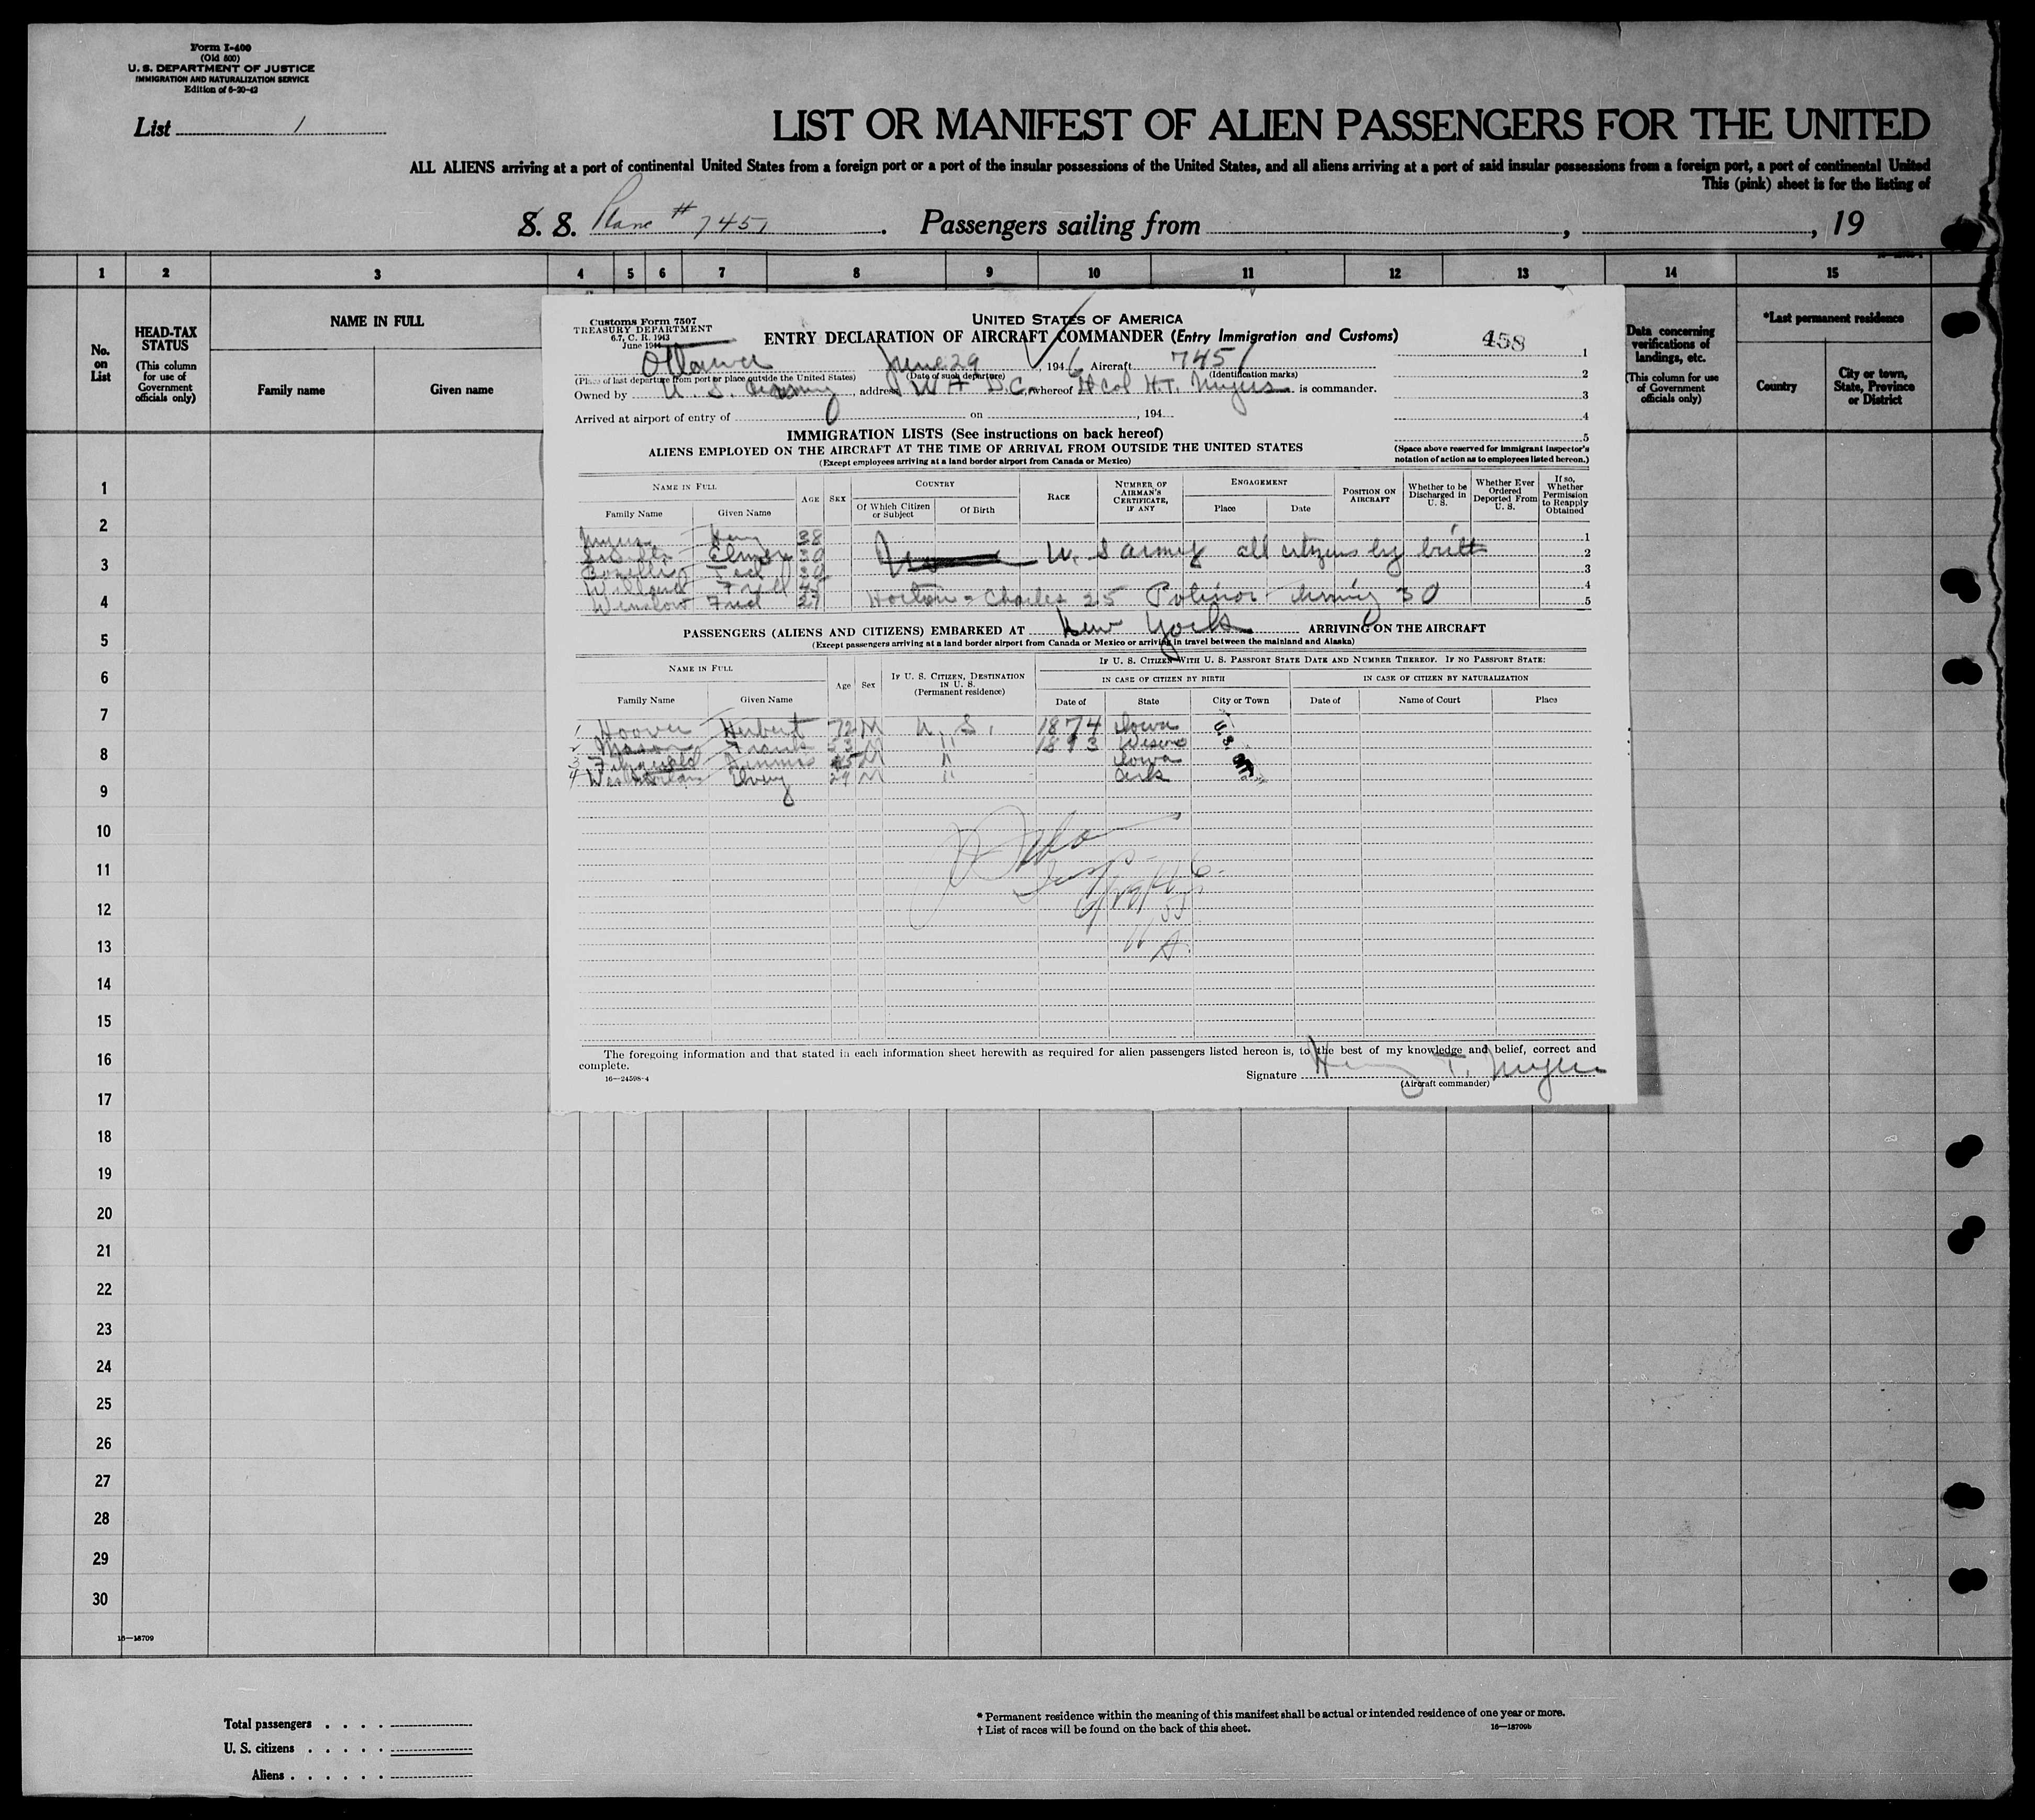 Form I-400
(Old 500)
U. S. DEPARTMENT OF JUSTICE
IMMIGRATION AND NATURALIZATION SERVICE
Edition of 6-20-42
List 1
LIST OR MANIFEST OF ALIEN PASSENGERS FOR THE UNITED
ALL ALIENS arriving at a port of continental United States from a foreign port or a port of the insular possessions of the United States, and all aliens arriving at a port of said insular possessions from a foreign port, a port of continental United
This (pink) sheet is for the listing of
S. S. Plane # 7451. Passengers sailing from , , 19
1 2 3 4 5 6 7 8 9 10 11 12 13 14 15
No. on List
HEAD-TAX STATUS
(This column for use of Government officials only)
NAME IN FULL
Family name Given name
Data concerning verifications of landings, etc.
(This column for use of Government officials only)
*Last permanent residence
Country
City or town, State, Province or District
Customs Form 7507
TREASURY DEPARTMENT
6.7, C. R. 1943
June 1944
UNITED STATES OF AMERICA
ENTRY DECLARATION OF AIRCRAFT COMMANDER (Entry Immigration and Customs)
458
Ottawa June 29 1946 Aircraft 7451
(Place of last departure from port or place outside the United States) (Date of such departure) (Identification marks)
Owned by U. S. Army, address W H D.C., whereof Lt Col H.T. Myers is commander.
Arrived at airport of entry of on , 194
1
2
3
4
5
(Space above reserved for immigrant inspector's notation of action as to employees listed hereon.)
IMMIGRATION LISTS (See instructions on back hereof)
ALIENS EMPLOYED ON THE AIRCRAFT AT THE TIME OF ARRIVAL FROM OUTSIDE THE UNITED STATES
(Except employees arriving at a land border airport from Canada or Mexico)
NAME IN FULL
Family Name Given Name
AGE SEX
COUNTRY
Of Which Citizen or Subject Of Birth
RACE
NUMBER OF AIRMAN'S CERTIFICATE, IF ANY
ENGAGEMENT
Place Date
POSITION ON AIRCRAFT
Whether to be Discharged in U. S.
Whether Ever Ordered Deported From U. S.
If so, Whether Permission to Reapply Obtained
Myers Henry 38 1
Elmer 30 U. S army all citizens by birth 2
Ted 30 3
Willard Fred 45 4
Winslow Fred 27 Horton - Charles 25 30 5
PASSENGERS (ALIENS AND CITIZENS) EMBARKED AT New York ARRIVING ON THE AIRCRAFT
(Except passengers arriving at a land border airport from Canada or Mexico or arriving in travel between the mainland and Alaska)
NAME IN FULL
Family Name Given Name
Age Sex
IF U. S. CITIZEN, DESTINATION IN U. S.
(Permanent residence)
IF U. S. CITIZEN WITH U. S. PASSPORT STATE DATE AND NUMBER THEREOF. IF NO PASSPORT STATE:
IN CASE OF CITIZEN BY BIRTH
IN CASE OF CITIZEN BY NATURALIZATION
Date of State City or Town Date of Name of Court Place
1 Hoover Herbert 72 M U. S. 1874 Iowa
2 Mason Frank 53 M " 1893 Wisc
3 Fitzgerald 45 M " Iowa
4 29 M " Ark
U. S. CIT
The foregoing information and that stated in each information sheet herewith as required for alien passengers listed hereon is, to the best of my knowledge and belief, correct and
complete.
16—24598-4
Signature Henry T. Myers
(Aircraft commander)
1
2
3
4
5
6
7
8
9
10
11
12
13
14
15
16
17
18
19
20
21
22
23
24
25
26
27
28
29
30
16—18709
Total passengers . . . .
U. S. citizens . . . . .
Aliens . . . . . .
* Permanent residence within the meaning of this manifest shall be actual or intended residence of one year or more.
† List of races will be found on the back of this sheet.
16—18709b